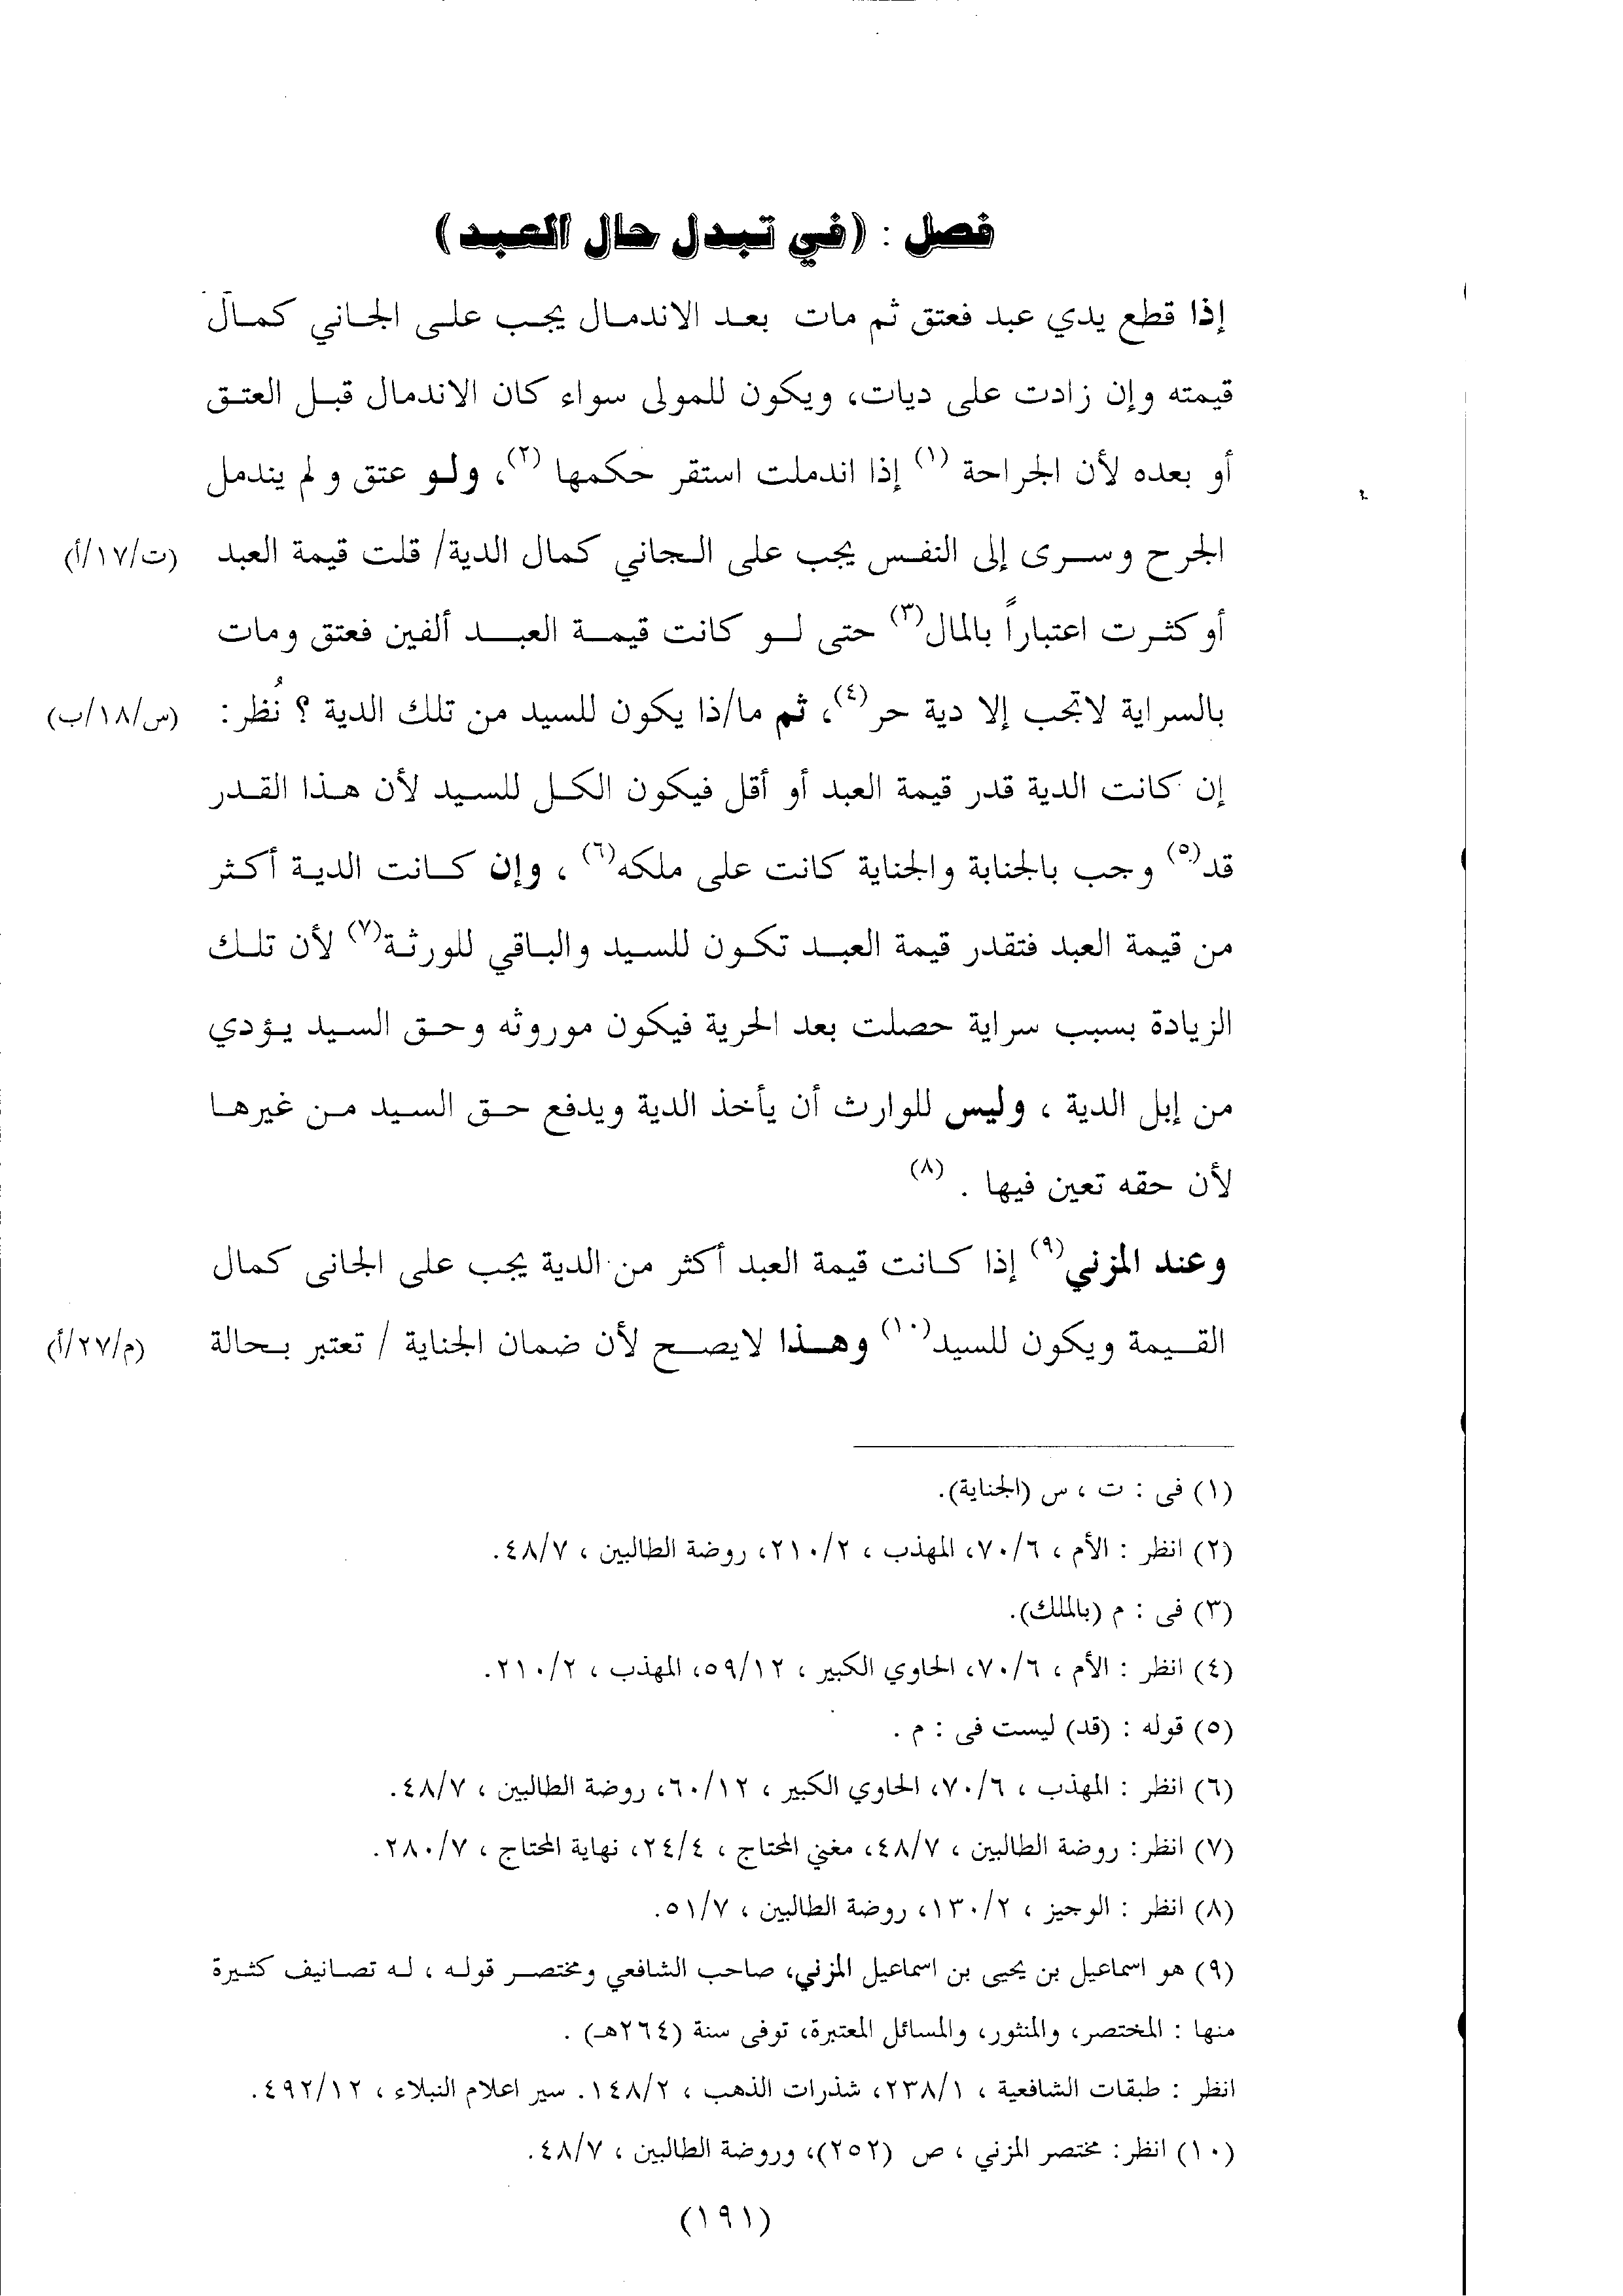 فصل : (في تبدل حال العبد)
إذا قطع يدي عبد فعتق ثم مات بعد الاندمال يجب على الجاني كمال
قيمته وإن زادت على ديات، ويكون للمولى سواء كان الاندمال قبل العتق
أو بعده لأن الجراحة (١) إذا اندملت استقر حكمها (٢)، ولو عتق و لم يندمل
الجرح وسرى إلى النفس يجب على الجاني كمال الدية/ قلت قيمة العبد (ت/١٧/أ)
أو كثرت اعتباراً بالمال(٣) حتى لو كانت قيمة العبد ألفين فعتق ومات
بالسراية لاتجب إلا دية حر(٤)، ثم ما/ذا يكون للسيد من تلك الدية ؟ نُظر: (س/١٨/ب)
إن كانت الدية قدر قيمة العبد أو أقل فيكون الكل للسيد لأن هذا القدر
قد(٥) وجب بالجنابة والجناية كانت على ملكه(٦) ، وإن كانت الدية أكثر
من قيمة العبد فتقدر قيمة العبد تكون للسيد والباقي للورثة(٧) لأن تلك
الزيادة بسبب سراية حصلت بعد الحرية فيكون موروثه وحق السيد يؤدي
من إبل الدية ، وليس للوارث أن يأخذ الدية ويدفع حق السيد من غيرها
لأن حقه تعين فيها . (٨)
وعند المزني(٩) إذا كانت قيمة العبد أكثر من الدية يجب على الجانى كمال
القيمة ويكون للسيد(١٠) وهذا لايصح لأن ضمان الجناية / تعتبر بحالة (م/٢٧/أ)
(١) فى : ت ، س (الجناية).
(٢) انظر : الأم ، ٧٠/٦، المهذب ، ٢١٠/٢، روضة الطالبين ، ٤٨/٧.
(٣) فى : م (بالملك).
(٤) انظر : الأم ، ٧٠/٦، الحاوي الكبير ، ٥٩/١٢، المهذب ، ٢١٠/٢.
(٥) قوله : (قد) ليست فى : م .
(٦) انظر : المهذب ، ٧٠/٦، الحاوي الكبير ، ٦٠/١٢، روضة الطالبين ، ٤٨/٧.
(٧) انظر: روضة الطالبين ، ٤٨/٧، مغني المحتاج ، ٢٤/٤، نهاية المحتاج ، ٢٨٠/٧.
(٨) انظر : الوجيز ، ١٣٠/٢، روضة الطالبين ، ٥١/٧.
(٩) هو اسماعيل بن يحيى بن اسماعيل المزني، صاحب الشافعي ومختصر قوله ، له تصانيف كثيرة
منها : المختصر، والمنثور، والمسائل المعتبرة، توفى سنة (٢٦٤هـ) .
انظر : طبقات الشافعية ، ٢٣٨/١، شذرات الذهب ، ١٤٨/٢. سير اعلام النبلاء ، ٤٩٢/١٢.
(١٠) انظر: مختصر المزني ، ص (٢٥٢)، وروضة الطالبين ، ٤٨/٧.
(١٩١)